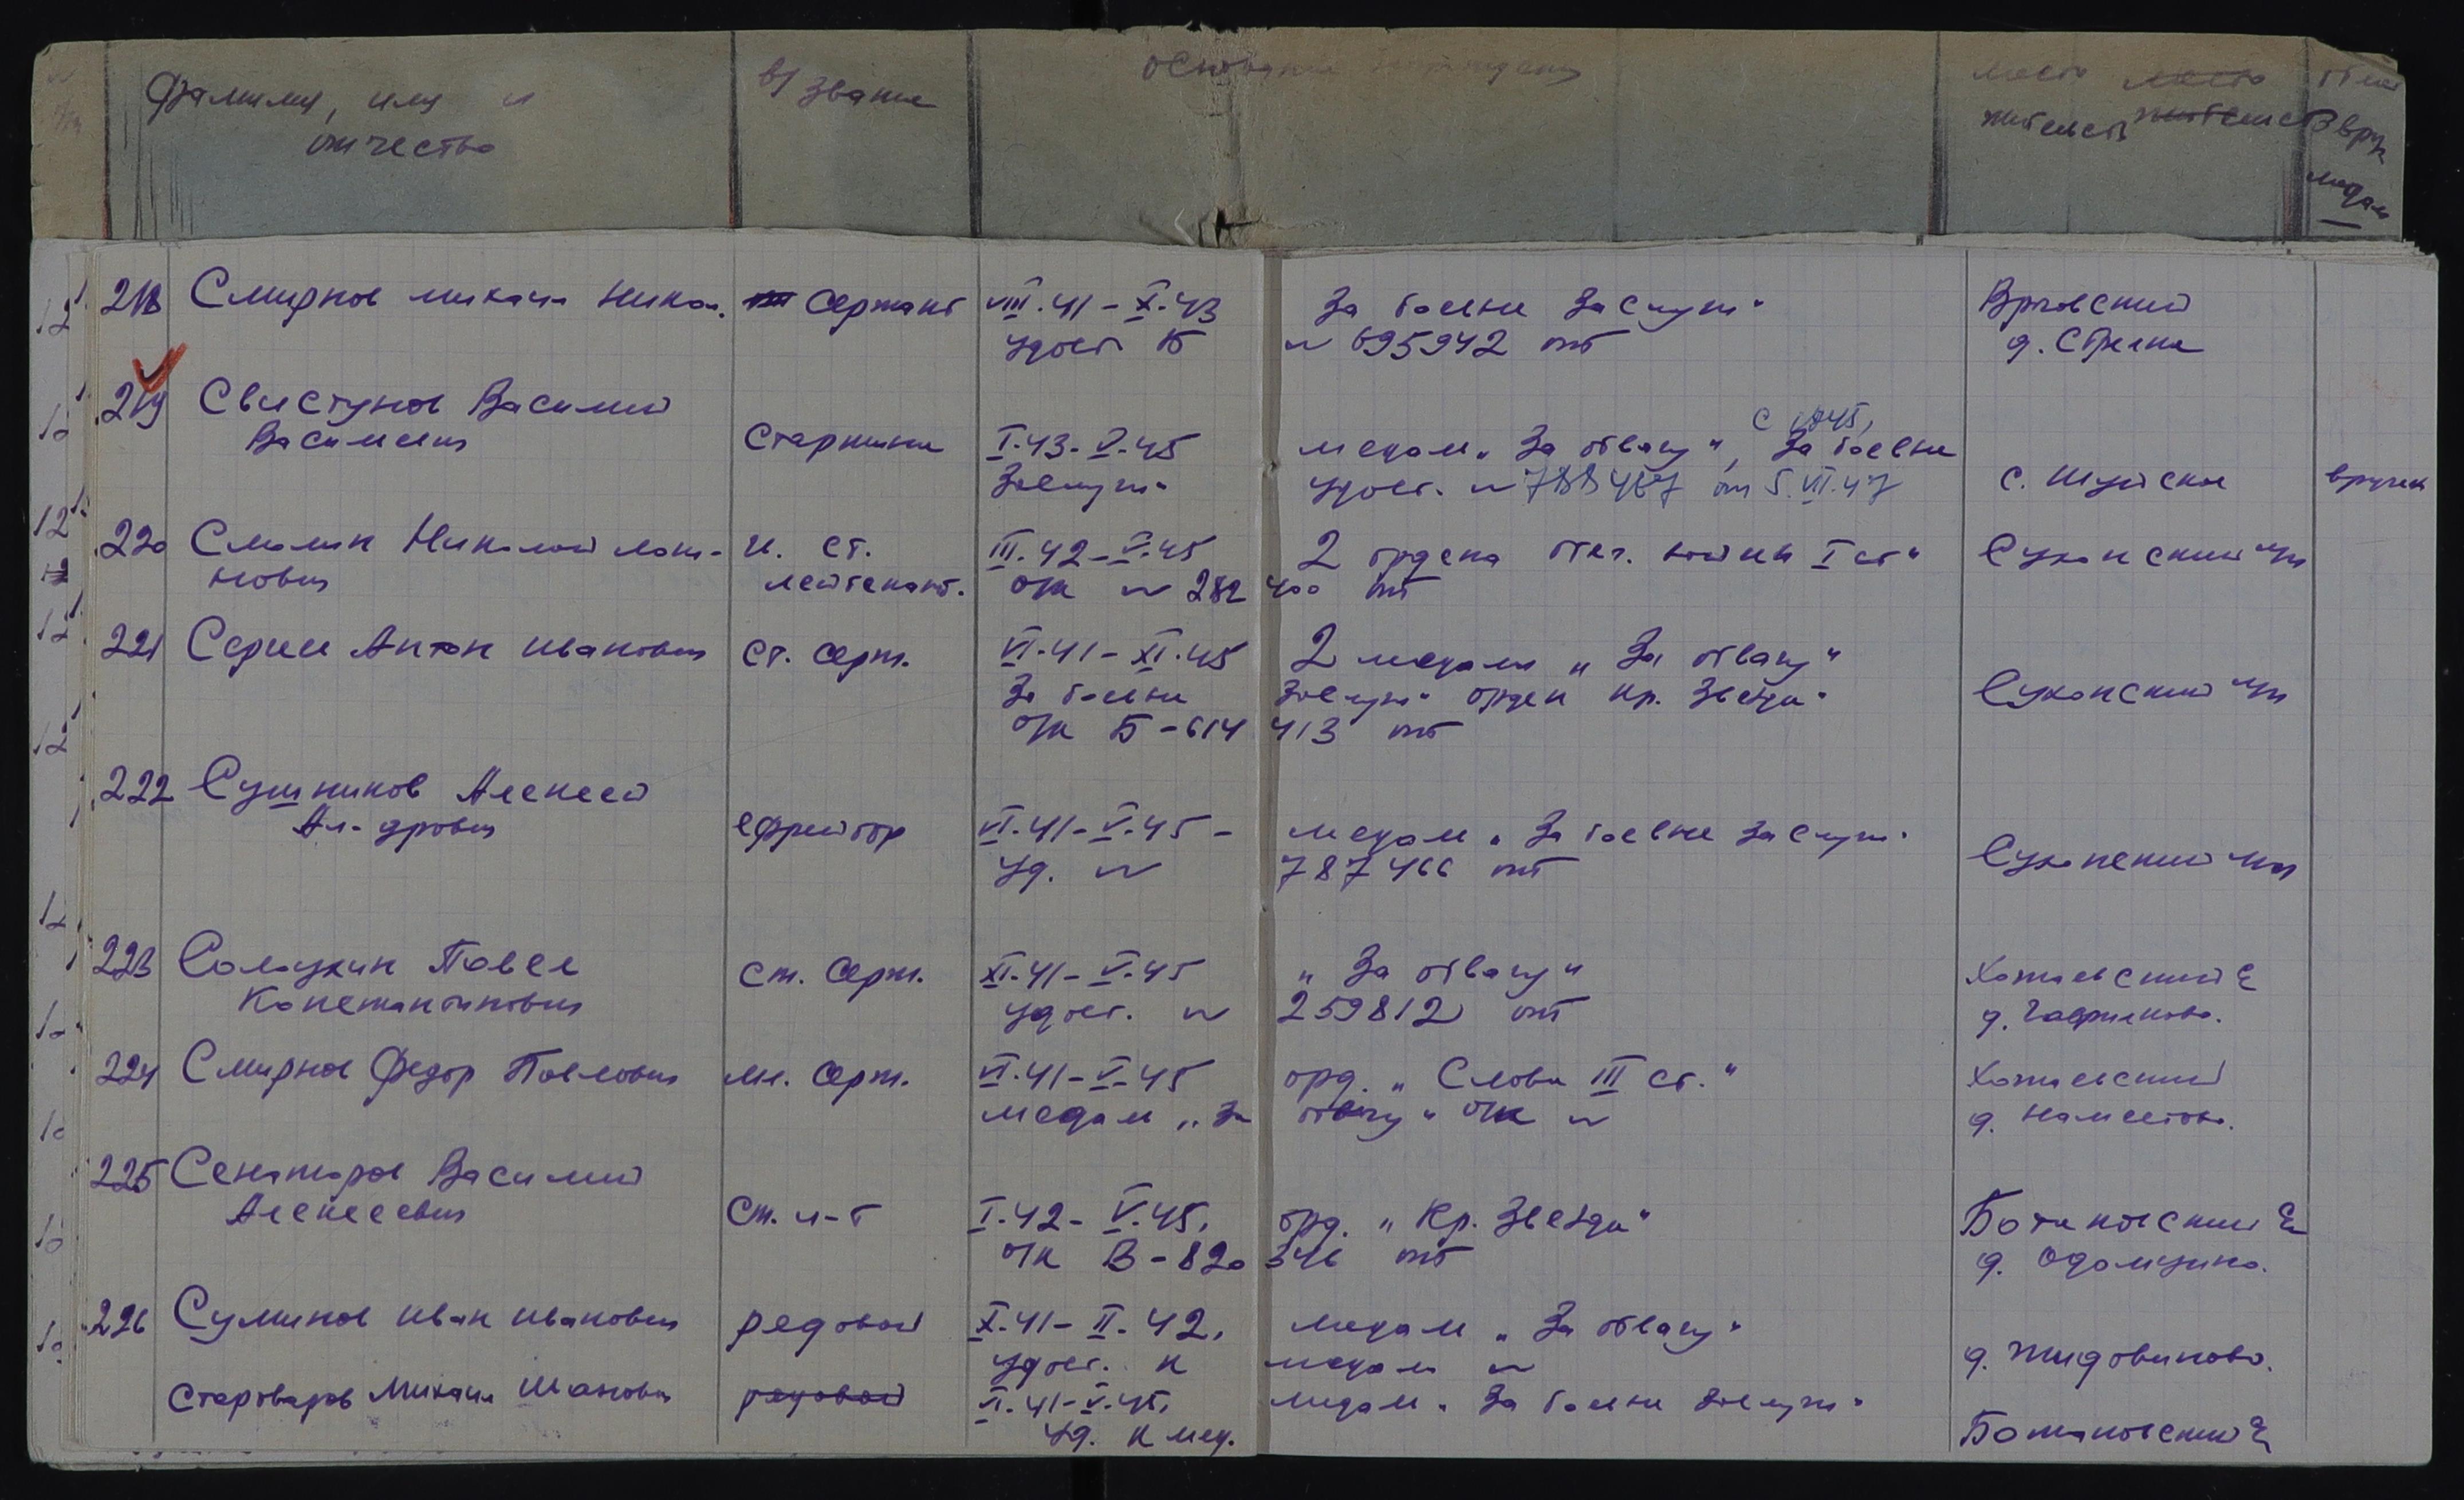 Фамилия, имя и
отчество
в/звание
основание
место
жительств
218 Смирнов михаил Никол. сержант VIII.41 – X.43 За боевые заслуги"
удост Б N 695942 от
д. Стрелка
219 Свистунов Василий
Васильевич старшина I.43-V.45 медали „За отвагу", За боевые
с 1945,
Заслуги" удост. N 788467 от 5.VII.47 с. Шуйское вручен
220 Смолин Николай
нович и. ст. III.42-V.45 2 ордена отеч. войны I ст" Сухонский
лейтенант. о/к N 282 400 от
221 Серии Антон иванович ст. серж. VI.41-XI.45 2 медали „За отвагу"
За боевые Заслуги" орден Кр. Звезда" Сухонский
о/к Б-614 413 от
222 Сушников Алексей
Ал-дрович ефрейтор VI.41-V.45 – медаль „За боевые заслуги"
уд. N 787466 от Сухонский
223 Солодягин Павел
Константинович ст. серж. XI.41-V.45 „За отвагу"
удост. N 259812 от
д. Гаврилково.
224 Смирнов Федор Павлович мл. серж. VI.41-V.45 орд. „Славы III ст."
медаль „За отвагу" о/к N
225 Сенаторов Василий
Алексеевич ст. л-т I.42-V.45, орд. „Кр. Звезда"
о/к В-820 346 от д. Одомцыно.
226 Суминов иван иванович редовой X.41-II.42, медаль „За отвагу"
удост. к медали N д. Жидовиново.
Староверов Михаил Иванович редовой VI.41-V.45, медаль „За боевые Заслуги"
уд. к мед. Ботановский